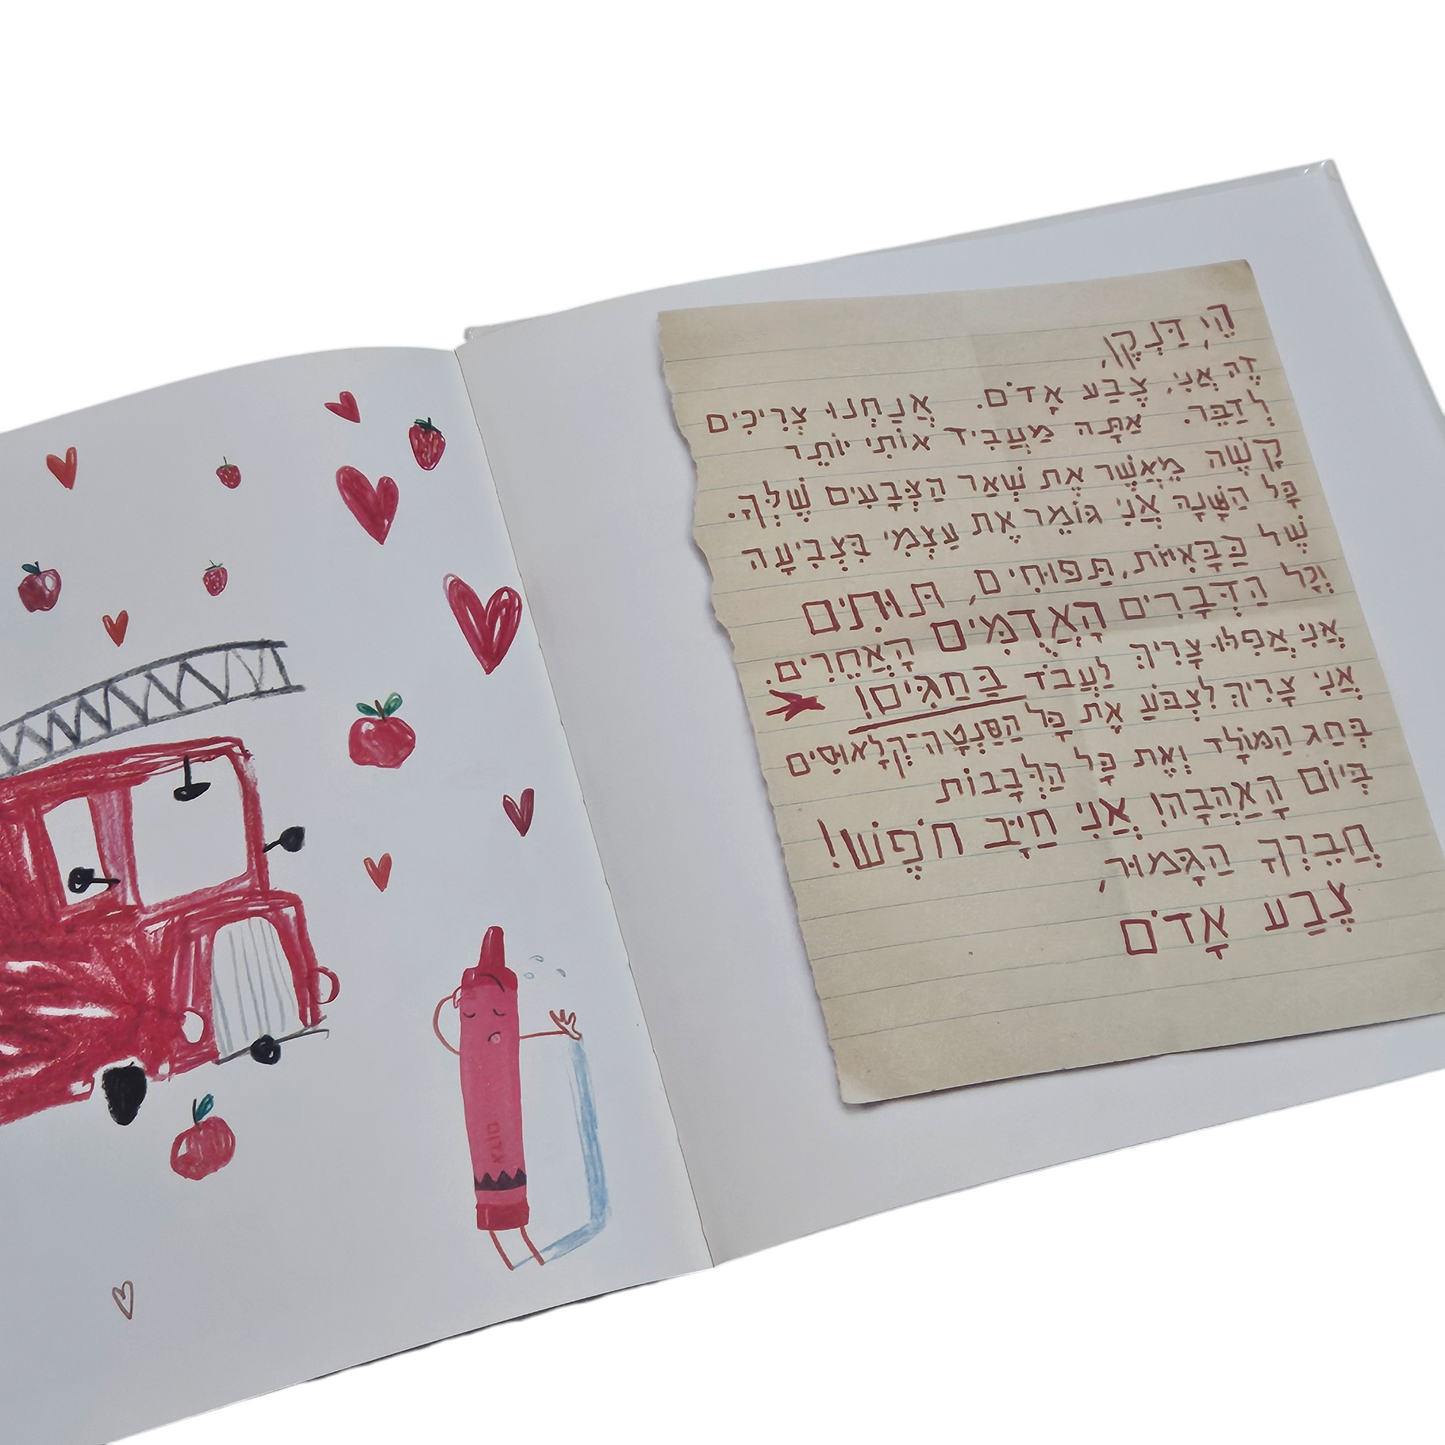 הֵי, דַּנְקֶן,
זֶה אֲנִי, צֶבַע אָדֹם. אֲנַחְנוּ צְרִיכִים
לְדַבֵּר. אַתָּה מַעֲבִיד אוֹתִי יוֹתֵר
קָשֶׁה מֵאֲשֶׁר אֶת שְׁאַר הַצְּבָעִים שֶׁלְּךָ.
כָּל הַשָּׁנָה אֲנִי גּוֹמֵר אֶת עַצְמִי בִּצְבִיעָה
שֶׁל כַּבָּאִיּוֹת, תַּפּוּחִים, תּוּתִים
וְכָל הַדְּבָרִים הָאֲדֻמִּים הָאֲחֵרִים.
אֲנִי אֲפִלּוּ צָרִיךְ לַעֲבֹד בַּחַגִּים!
אֲנִי צָרִיךְ לִצְבֹּעַ אֶת כָּל הַסַּנְטָה־קְלָאוּסִים
בְּחַג הַמּוֹלָד וְאֶת כָּל הַלְּבָבוֹת
בְּיוֹם הָאַהֲבָה! אֲנִי חַיָּב חֹפֶשׁ!
חֲבֵרְךָ הַגָּמוּר,
צֶבַע אָדֹם